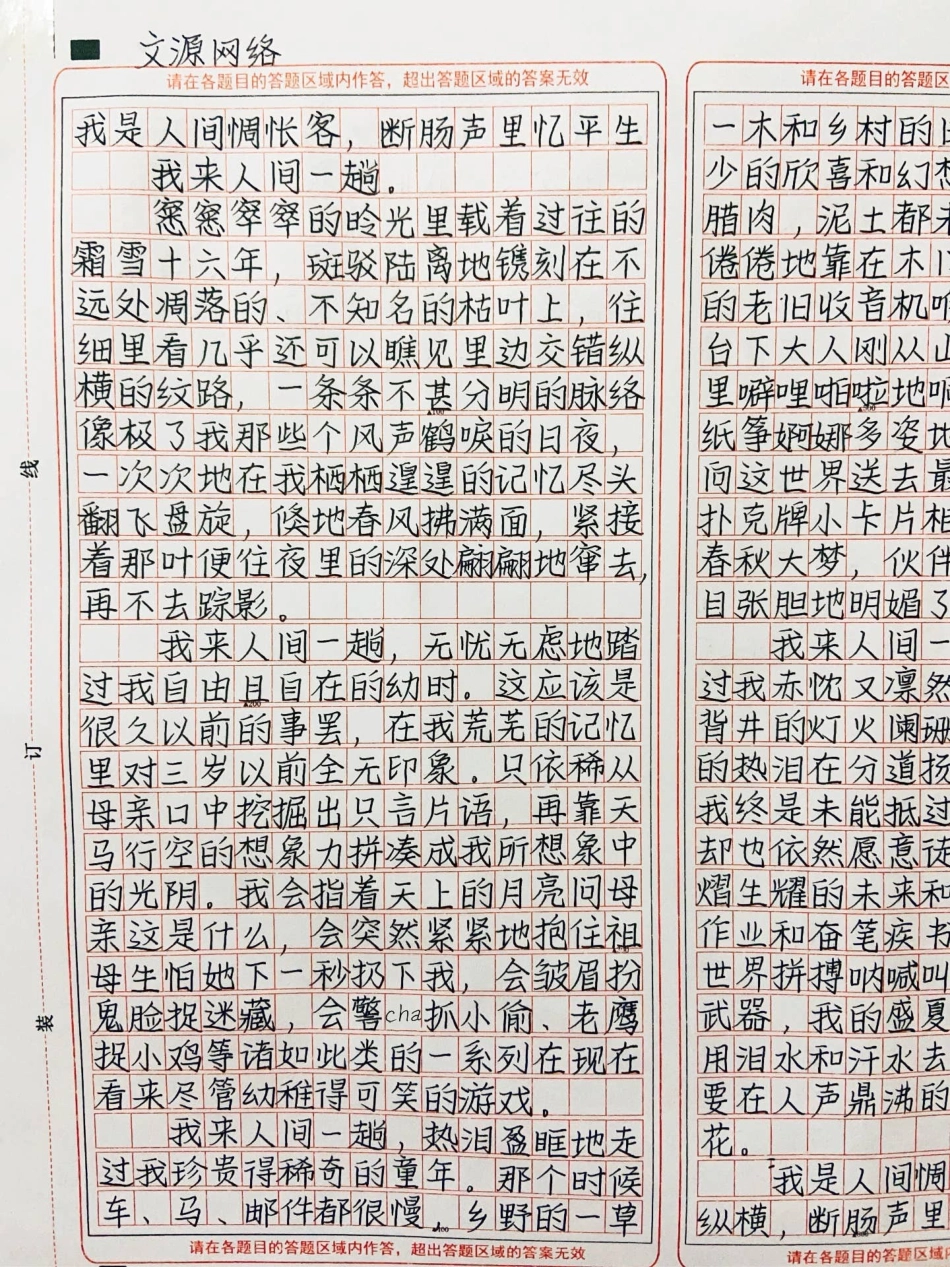 文源网络
请在各题目的答题区域内作答，超出答题区域的答案无效
我是人间惆怅客，断肠声里忆平生
我来人间一趟。
窸窸窣窣的呤光里载着过往的
霜雪十六年，斑驳陆离地镌刻在不
远处凋落的、不知名的枯叶上，往
细里看几乎还可以瞧见里边交错纵
横的纹路，一条条不甚分明的脉络
▲100
像极了我那些个风声鹤唳的日夜，
一次次地在我栖栖遑遑的记忆尽头
翻飞盘旋，倏地春风拂满面，紧接
着那叶便往夜里的深处翩翩地窜去，
再不去踪影。
我来人间一趟，无忧无虑地踏
过我自由且自在的幼时。这应该是
▲200
很久以前的事罢，在我荒芜的记忆
里对三岁以前全无印象。只依稀从
母亲口中挖掘出只言片语，再靠天
马行空的想象力拼凑成我所想象中
的光阴。我会指着天上的月亮问母
亲这是什么，会突然紧紧地抱住祖
母生怕她下一秒扔下我，会皱眉扮
鬼脸捉迷藏，会警cha抓小偷、老鹰
捉小鸡等诸如此类的一系列在现在
看来尽管幼稚得可笑的游戏。
我来人间一趟，热泪盈眶地走
过我珍贵得稀奇的童年。那个时候
车、马、邮件都很慢，乡野的一草
▲400
请在各题目的答题区域内作答，超出答题区域的答案无效
请在各题目的答题区
一木和乡村的
少的欣喜和幻想
腊肉，泥土都未
倦倦地靠在木
的老旧收音机
台下大人刚从山
里噼哩啪啦地响
▲500
纸筝婀娜多姿地
向这世界送去最
扑克牌小卡片相
春秋大梦，伙伴
目张胆地明媚了
我来人间一
过我赤忱又凛然
背井的灯火阑珊
的热泪在分道扬
我终是未能抵过
却也依然愿意徒
熠生耀的未来和
作业和奋笔疾书
世界拼搏呐喊叫
武器，我的盛夏
用泪水和汗水去
要在人声鼎沸的
花。
我是人间惆
纵横，断肠声里
请在各题目的答题区域内
线
订
装